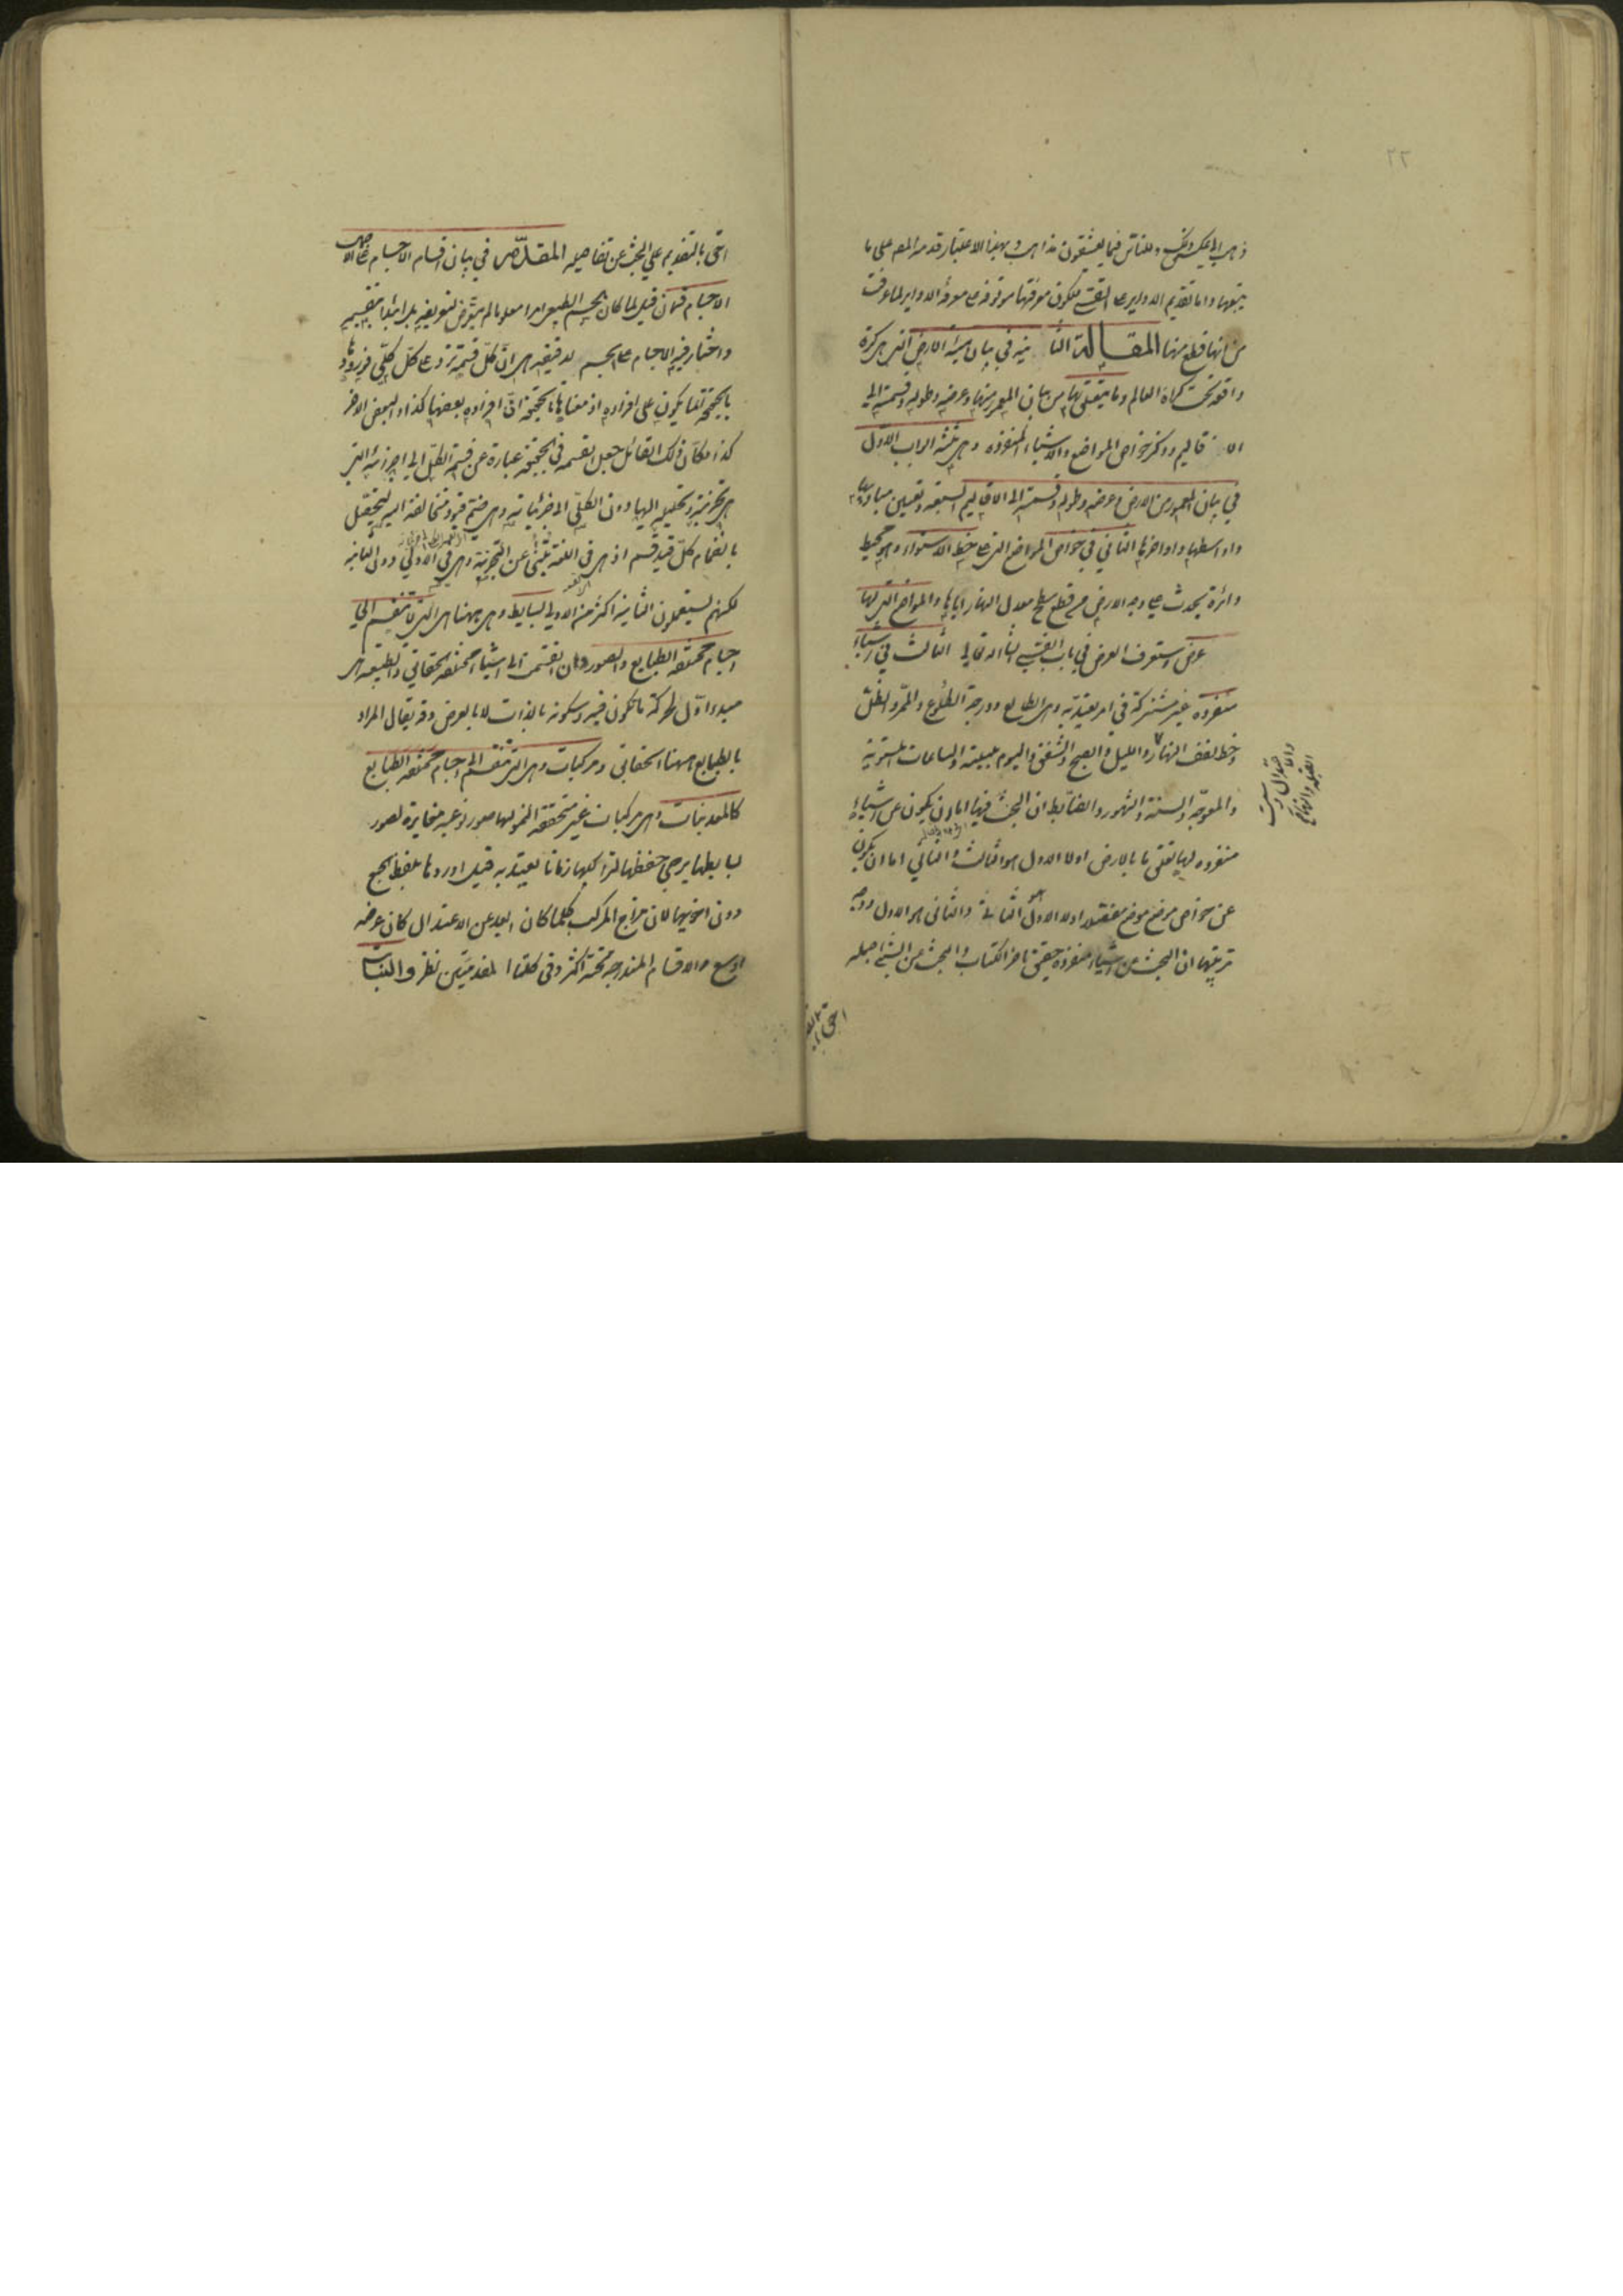 ٢٢
وللناس فيما يعشقون مذاهب وبهذا الاعتبار قدمه المص على ما
يتبعها واما تقديم الدوائر على القسي فلكون معرفتها موقوفة على معرفة الدواير لما عرفت
من انها قطع منها المقالة الثانية في بيان هيئة الارض التي هي كرة
واقعة تحت كرات العالم وما يتعلق بها من بيان المعمور منها وعرضه وطوله وقسمته الى
الاقاليم وذكر خواص المواضع والاشياء المنفردة وهي ثلثة ابواب الباب الاول
في بيان المعمور من الارض وعرضه وطوله وقسمته الى الاقاليم السبعة وتعيين مباديها
واواسطها واواخرها الثاني في خواص المواضع التي على خط الاستواء وهو محيط
دائرة تحدث على وجه الارض من قطع سطح معدل النهار اياها والمواضع التي لها
عرض وستعرف العرض في باب القسي ان شاء الله تعالى الثالث في اشياء
منفردة غير مشتركة في امر يعتد به وهي الطالع ودرجة الطلوع والممر والظل
وخط نصف النهار والليل والصبح والشفق واليوم بليلته والساعات المستوية
والمعوجة والسنة والشهور والضابط ان البحث فيها اما ان يكون عن اشياء
منفردة لها تعلق ما بالارض اولا الاول هو الثالث والثاني اما ان يكون
عن خواص موضع موضع اولا الاول هو الثاني والثاني هو الاول ووجه
ترتيبها ان البحث عن اشياء منفردة حقيق باخر الكتاب والبحث عن الشئ اجمله
احق بال
احق بالتقديم على البحث عن تفاصيله المقدمة في بيان اقسام الاجسام على الاجمال
الاجسام قسمان قيل لما كان الجسم الطبيعي امرا معلوما لم يتعرض لتعريفه بل ابتدأ بتقسيمه
واختار فيه الاجسام على الجسم لدقيقة هي ان كل قسمة ترد على كل كلي فورودها
بالحقيقة انما يكون على افراده اذ معناها بالحقيقة ان افراده بعضها كذا والبعض الاخر
كذا وكأن ذلك القائل جعل القسمة في الحقيقة عبارة عن قسمة الكل الى اجزائه التي
هي تجزيته وتحليله اليها دون الكلي الى جزئياته وهي ضم قيود متخالفة اليه ليتحصل
بانضمام كل قيد قسم اذ هي في اللغة تنبئ عن التجزية وهي في الاولى دون الثانية
لكنهم يستعملون الثانية اكثر من الاولى بسايط وهي ههنا هي التي لا تنقسم الى
اجسام مختلفة الطبايع والصور وان انقسمت الى اشياء مختلفة الحقايق والطبيعة هي
مبدء اول لحركة ما تكون فيه وسكونه بالذات لا بالعرض وقد يقال المراد
بالطبايع ههنا الحقايق ومركبات وهي التي تنقسم الى اجسام مختلفة الطبايع
كالمعدنيات وهي مركبات غير متحققة النمو لها صور نوعية مغايرة لصور
بسايطها يرجى حفظها لتراكيبها زمانا يعتد به قيل اوردها بلفظ الجمع
دون اخويها لان مزاج المركب كلما كان ابعد عن الاعتدال كان عرضه
اوسع والاقسام المندرجة تحته اكثر وفي كلتا المقدمتين نظر والنبات